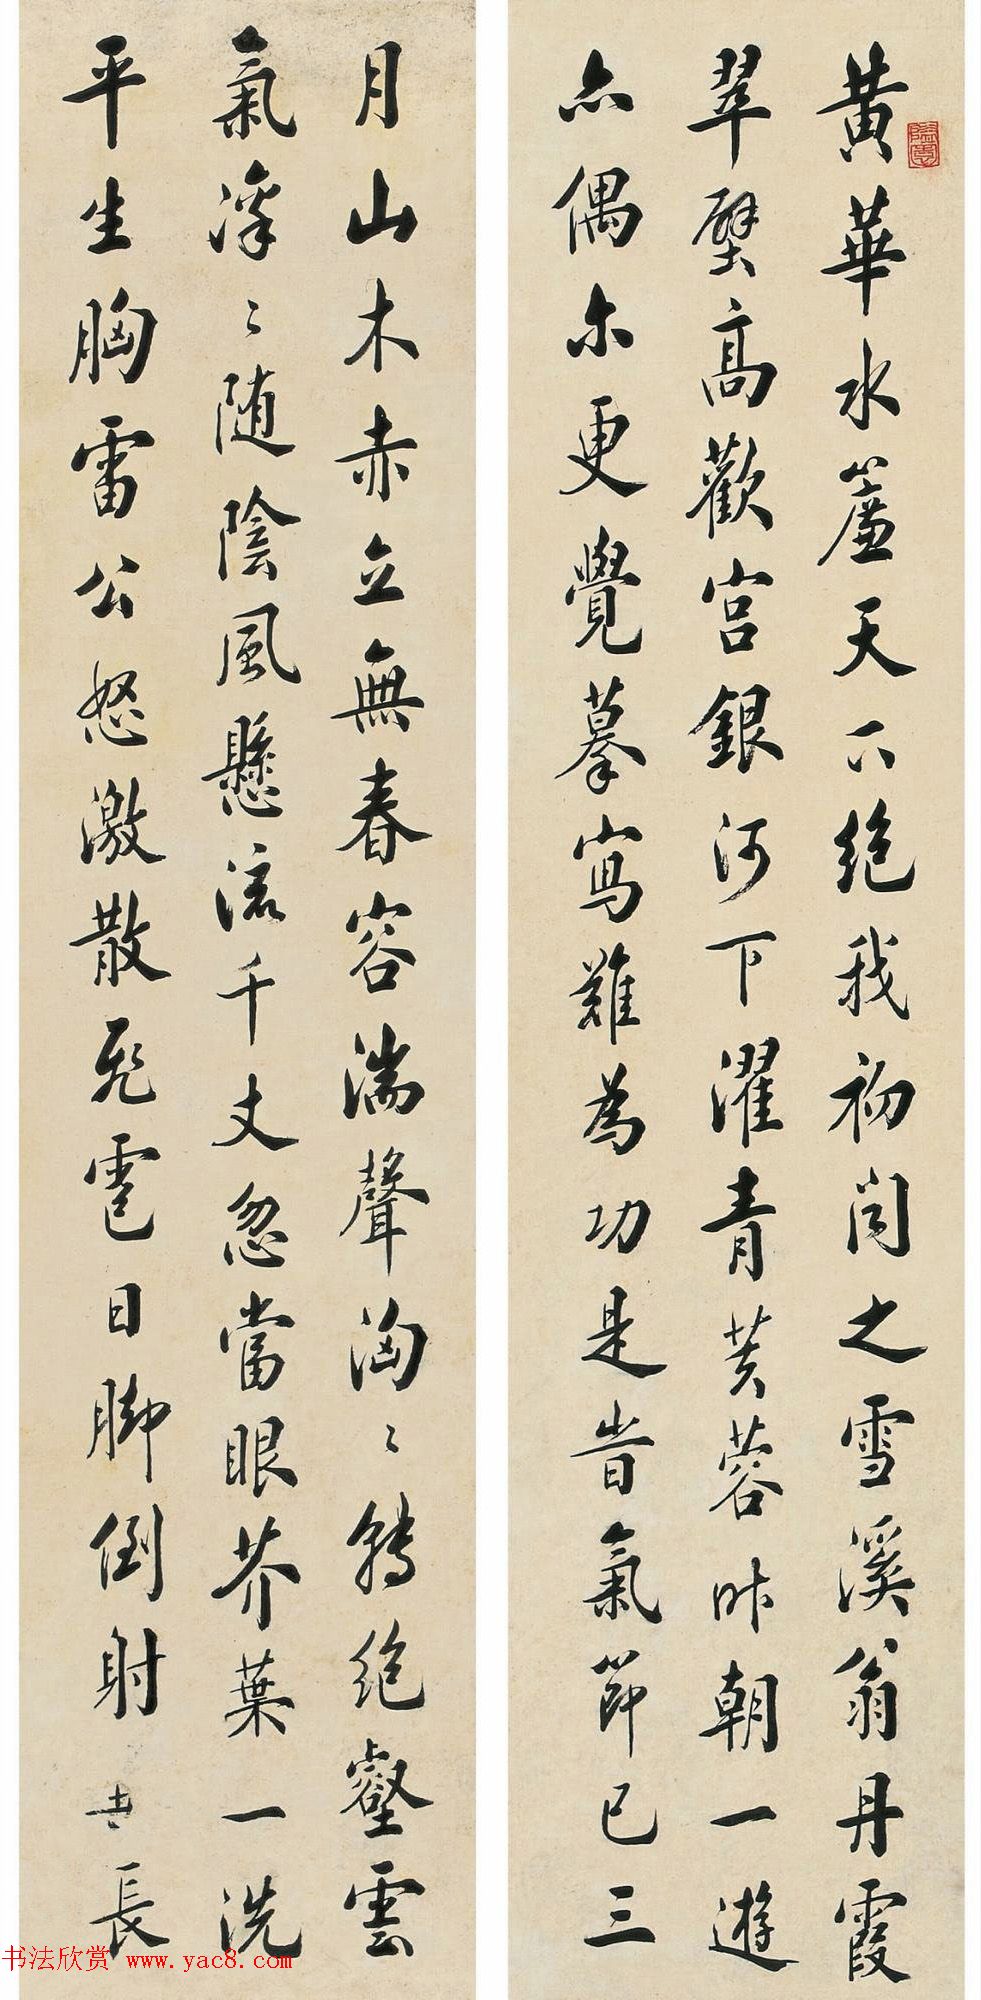 黃華水簾天下絕我初聞之雪溪翁丹霞
翠壁高歡宮銀河下濯青芙蓉昨朝一遊
亦偶尔更覺摹寫難為功是時氣節已三
月山木赤立無春容湍聲洶〻轉絕壑雲
氣深〻随陰風懸流千丈忽當眼芥葉一洗
平生胸雷公怒激散飛雹日脚倒射
長
书法欣赏 www.yac8.com